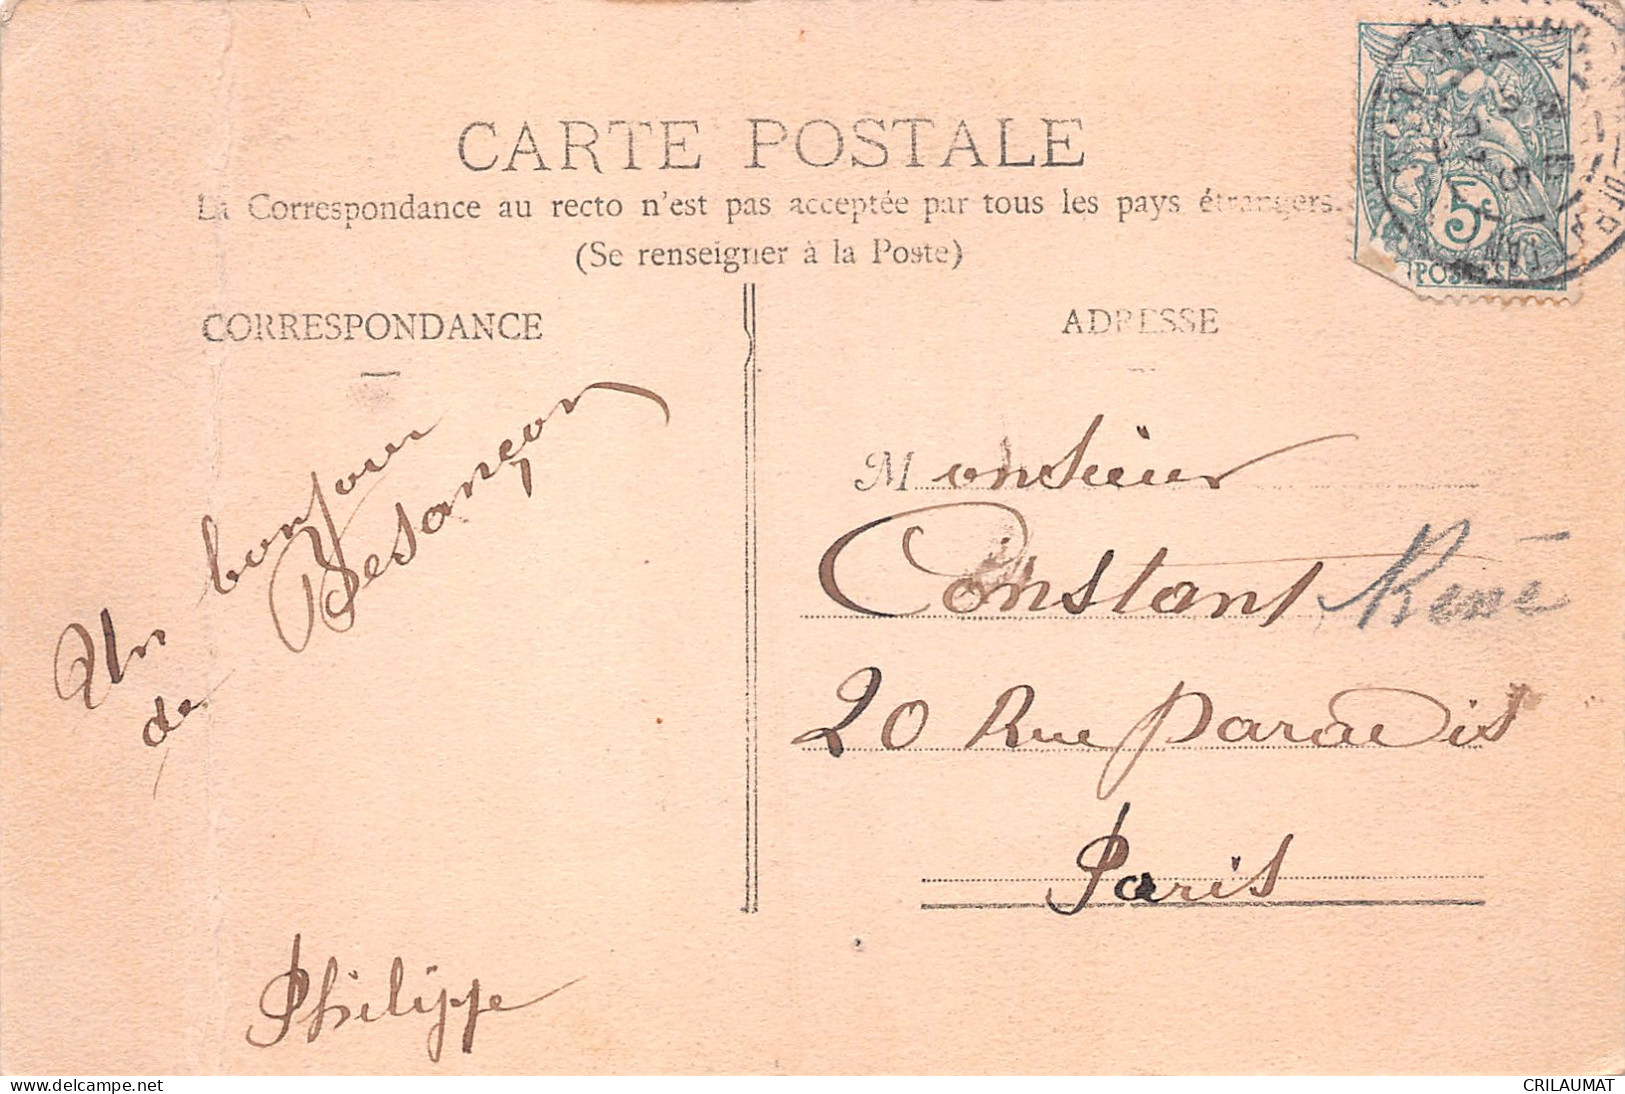 CARTE POSTALE
La Correspondance au recto n'est pas acceptée par tous les pays étrangers.
(Se renseigner à la Poste)
CORRESPONDANCE
Un bonjour
de Besançon
Philippe
ADRESSE
Monsieur
Constant René
20 Rue Paradis
Paris
5c
POSTES
CRILAUMAT